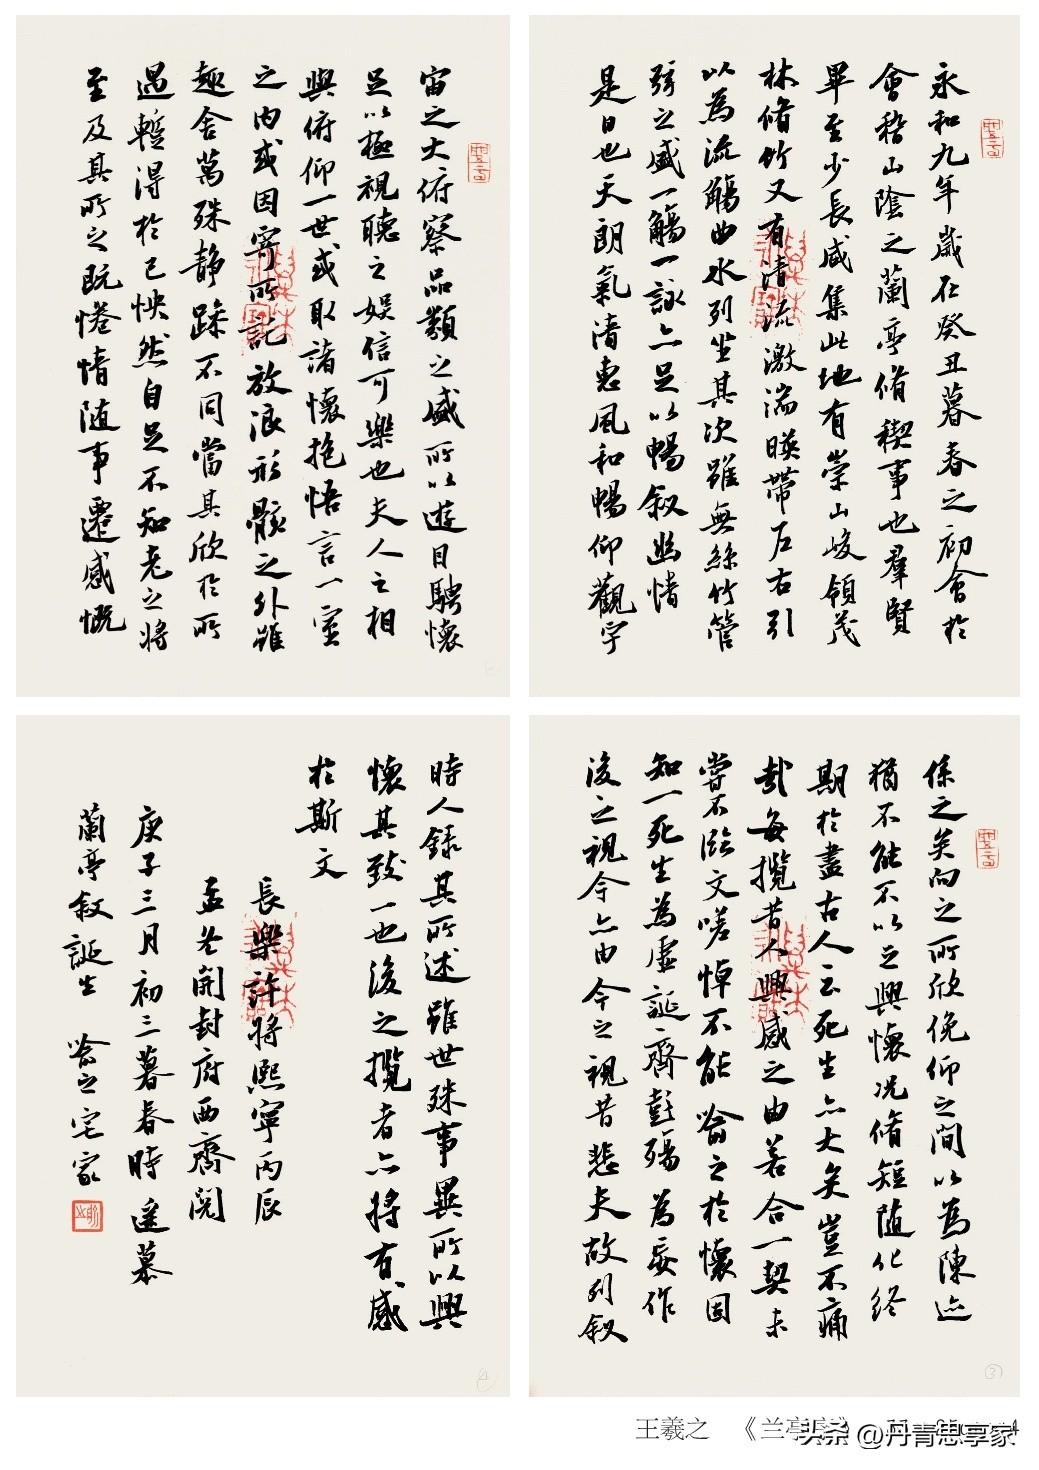 永和九年歲在癸丑暮春之初會於
會稽山陰之蘭亭脩稧事也羣賢
畢至少長咸集此地有崇山峻領茂
林脩竹又有清流激湍暎帶左右引
以為流觴曲水列坐其次雖無絲竹管
弦之盛一觴一詠亦足以暢叙幽情
是日也天朗氣清惠風和暢仰觀宇
宙之大俯察品類之盛所以遊目騁懷
足以極視聽之娛信可樂也夫人之相
與俯仰一世或取諸懷抱悟言一室
之內或因寄所託放浪形骸之外雖
趣舍萬殊静躁不同當其欣於所
遇蹔得於己怏然自足不知老之將
至及其所之既惓情随事遷感慨
係之矣向之所欣俛仰之間以為陳迹
猶不能不以之興懷况脩短随化終
期於盡古人云死生亦大矣豈不痛
哉每攬昔人興感之由若合一契未
嘗不臨文嗟悼不能喻之於懷固
知一死生為虛誕齊彭殤為妄作
後之視今亦由今之視昔悲夫故列叙
時人錄其所述雖世殊事異所以興
懷其致一也後之攬者亦將有感
於斯文
長樂許將熙寧丙辰
孟冬開封府西齋閱
庚子三月初三暮春時遙慕
蘭亭叙誕生 喻之宅家
③
4
王羲之 《兰亭序》
头条 @丹青思享家